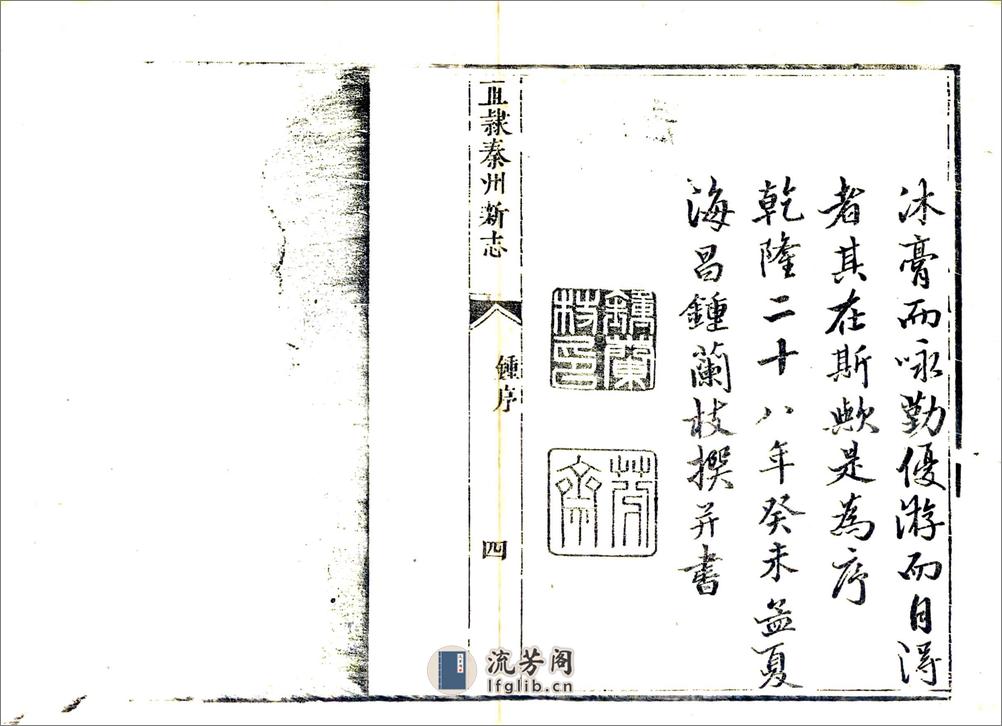 沐膏而咏勤優游而自得
者其在斯歟是為序
乾隆二十八年癸未孟夏
海昌鍾蘭枝撰并書
鍾蘭枝印
芳齋
直隷秦州新志
鍾序
四
流芳阁
lfglib.cn